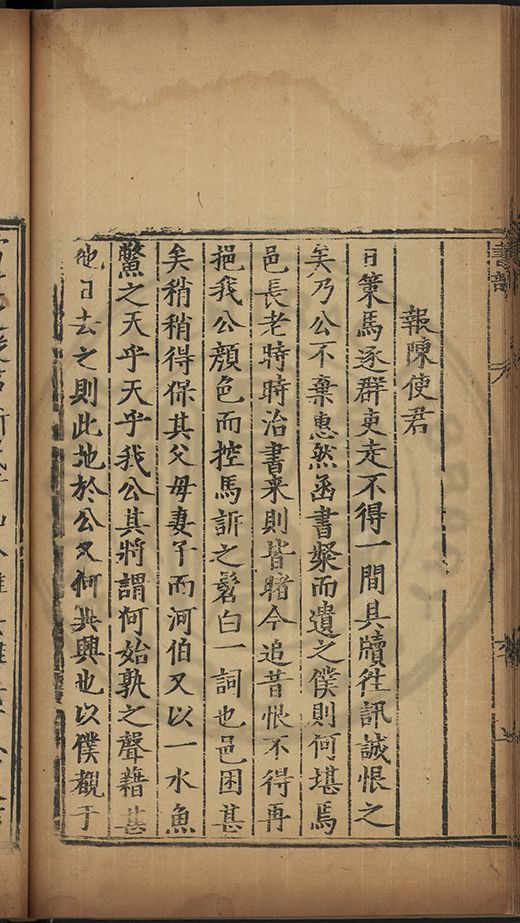 報陳使君
日策馬逐群吏走不得一間具牘往訊誠恨之
矣乃公不棄惠然函書槃而遺之僕則何堪焉
邑長老時時治書来則皆睹今追昔恨不得再
挹我公顏色而控馬訴之髫白一詞也邑困甚
矣稍稍得保其父母妻子而河伯又以一水魚
鱉之天乎天乎我公其將謂何始孰之聲藉甚
他日去之則此地於公又何興也以僕觀于